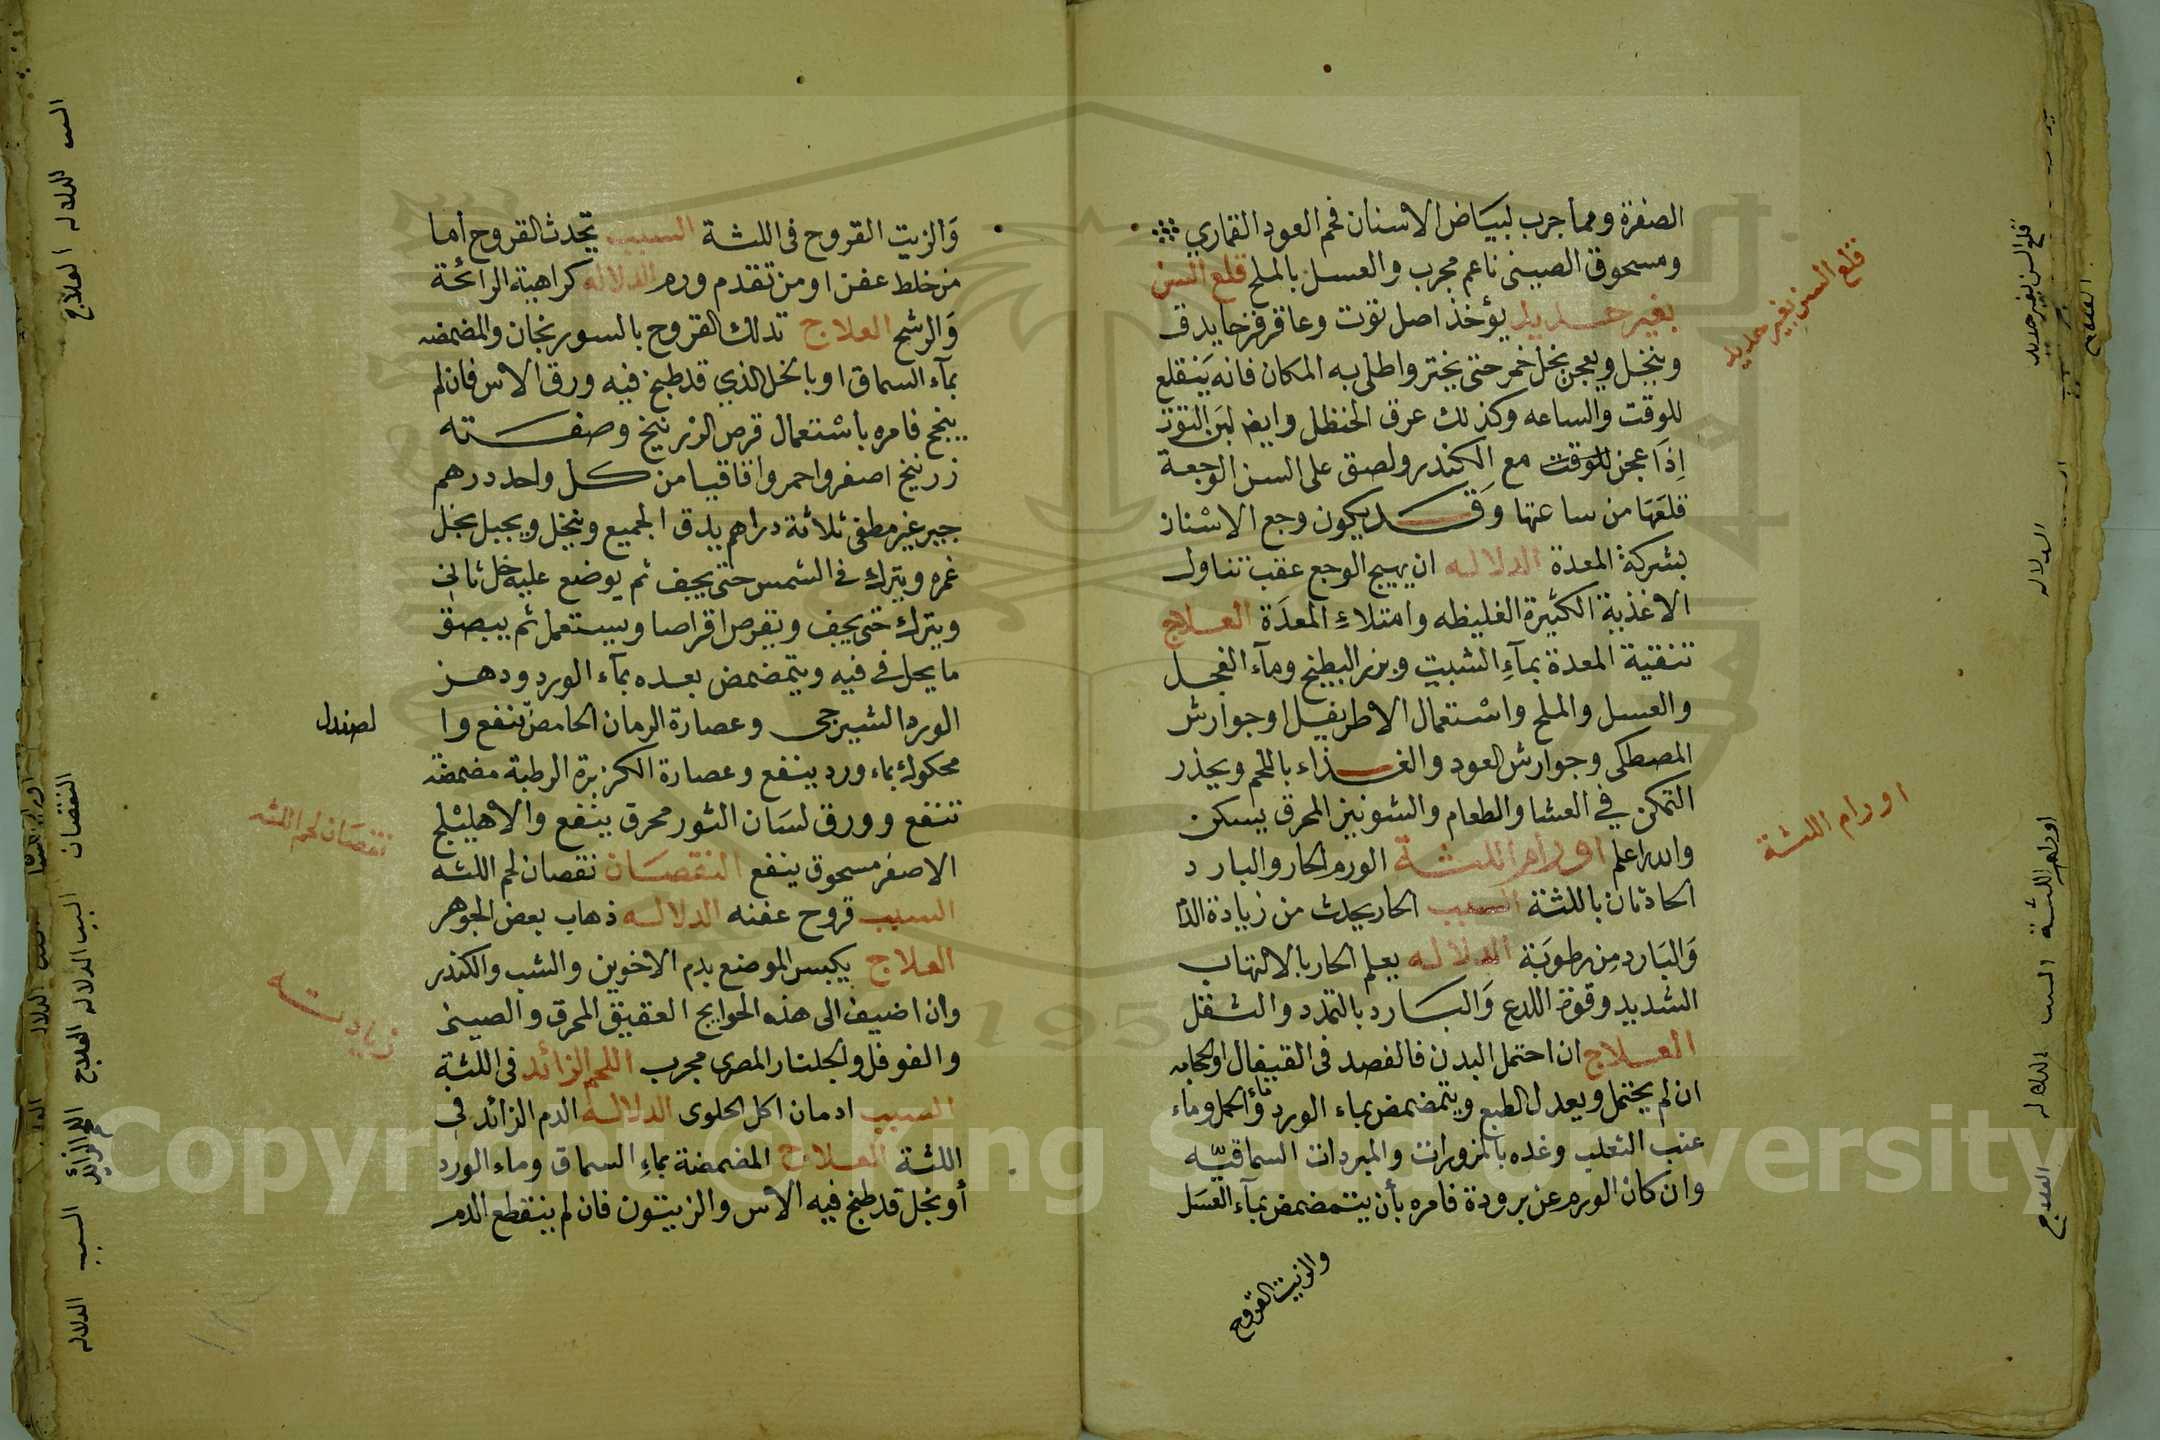 الصفرة ومما جرب لبياض الاسنان فحم العود القماري
ومسحوق الصيني ناعم مجرب والعسل بالملح قلع السن
بغير حديد يؤخذ اصل توت وعاقر قرحا يدق
وينخل ويعجن بخل خمر حتى يختر واطلى به المكان فانه ينقلع
للوقت والساعه وكذلك عرق الحنظل وايضا لبن التوت
اذا عجن للوقت مع الكندر ولصق على السن الوجعة
قلعها من ساعتها وقد يكون وجع الاسنان
بشركة المعدة الدلاله ان يهيج الوجع عقب تناول
الاغذية الكثيرة الغليظه وامتلاء المعدة العلاج
تنقية المعدة بمآء الشبت وبزر البطيخ ومآء الفجل
والعسل والملح واستعمال الاطريفل او جوارش
المصطكى وجوارش العود والغذاء باللحم ويحذر
التمكن في العشا والطعام والشونيز المحرق يسكن
والله اعلم اورام اللثة الورم الحار والبارد
الحادثان باللثة السبب الحار يحدث من زيادة الدم
والبارد من رطوبة الدلاله يعلم الحار بالالتهاب
الشديد وقوة اللدع والبارد بالتمدد والثقل
العلاج ان احتمل البدن فالفصد في القيفال او الحجامه
ان لم يحتمل ويعدل الطبع ويتمضمض بماء الورد وماء
عنب الثعلب وغده بالمزورات والمبردات السماقيه
وان كان الورم عن برودة فامره بأن يتمضمض بمآء العسل
والزيت القروح
قلع السن بغير حديد
اورام اللثة
قلع السن بغير حديد
العلاج
الدلاله
اورام اللثة السبب الدلاله
العلاج
والزيت القروح في اللثة السبب تحدث القروح أما
من خلط عفن او من تقدم ورم الدلاله كراهية الرائحة
والرشح العلاج تدلك القروح بالسورنجان والمضمضه
بمآء السماق او بالخل الذي قد طبخ فيه ورق الاس فان لم
ينجح فامره بأستعمال قرص الزرنيخ وصفته
زرنيخ اصفر واحمر واقاقيا من كل واحد درهم
جير غير مطفى ثلاثة دراهم يدق الجميع وينخل ويجبل بخل
غمره ويترك في الشمس حتى يجف ثم يوضع عليه خل ثاني
ويترك حتى يجف وتقرص اقراصا ويستعمل ثم يبصق
ما يحل في فيه ويتمضمض بعده بمآء الورد ودهن
الورد الشيرجى وعصارة الرمان الحامض تنفع وا
لصندل
محكوك بماء ورد ينفع وعصارة الكزبرة الرطبة مضمضة
تنفع وورق لسان الثور محرق ينفع والاهليلج
الاصفر مسحوق ينفع النقصان نقصان لحم اللثه
السبب قروح عفنه الدلاله ذهاب بعض الجوهر
العلاج يكبس الموضع بدم الاخوين والشب والكندر
وان اضيف الى هذه الحوايج العقيق المحرق والصيني
والفوفل والجلنار المصرى مجرب اللحم الزائد في اللثة
السبب ادمان اكل الحلوى الدلاله الدم الزائد في
اللثة العلاج المضمضة بماء السماق وماء الورد
أو بخل قد طبخ فيه الاس والزيتون فان لم ينقطع الدم
نقصان لحم اللثه
زيادته
السبب الدلاله العلاج
النقصان السبب الدلاله العلاج
السبب الدلاله
Copyright © King Saud University
195